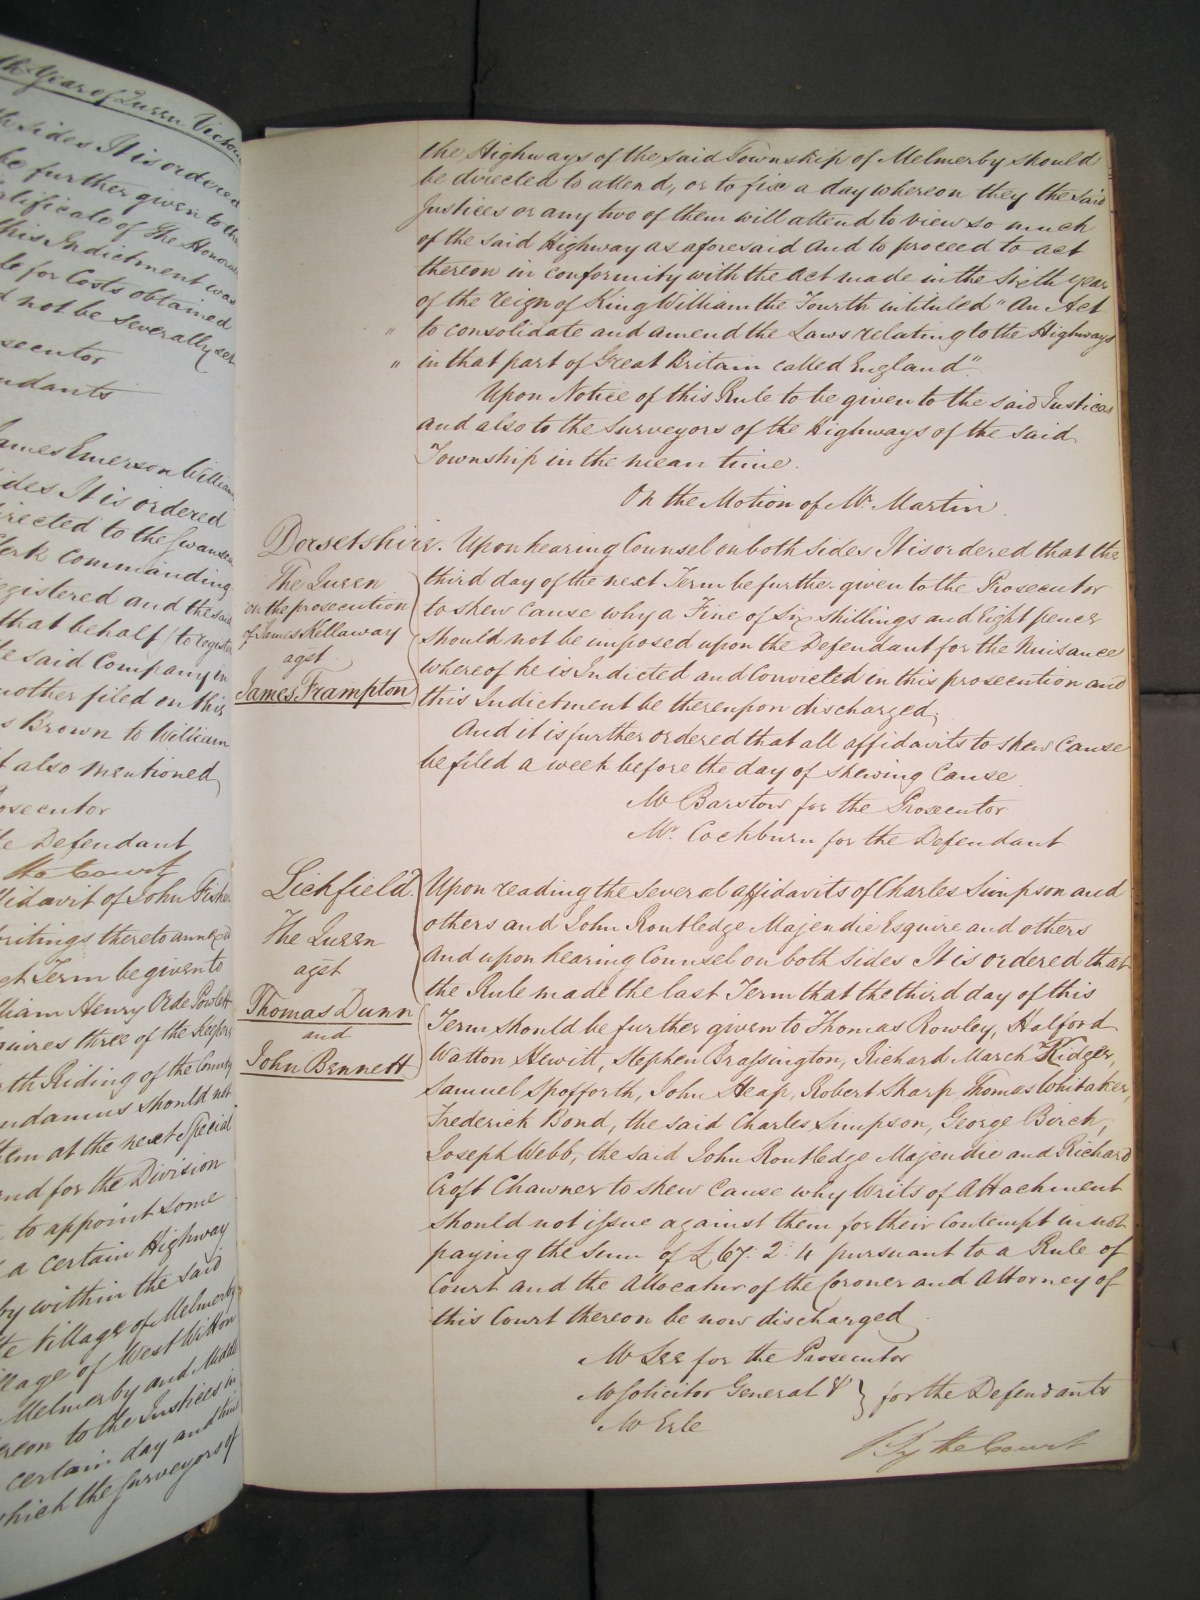 th Year of Queen Victoria
sides It is ordered
be further given to the
Certificate of The Honorable
this Indictment was
for Costs obtained
not be severally
Prosecutor
Defendants
James Emerson William
sides It is ordered
directed to the Swansea
Clerk Commanding
registered and the said
that behalf to register
the said Company in
another filed on this
Brown to William
also mentioned
Prosecutor
the Defendant
the Court
Affidavit of John Fisher
writings thereto annexed
next Term be given to
William Henry Orde Powlett
Esquires three of the Keepers
North Riding of the County
Mandamus should not
them at the next Special
and for the Division
to appoint some
a certain Highway
by within the said
the Village of Melmerby
Village of West Witton
Melmerby and Middle
thereon to the Justices in
certain day and
which the Surveyors of
the Highways of the said Township of Melmerby should
be directed to attend, or to fix a day whereon they the said
Justices or any two of them will attend to view so much
of the said Highway as aforesaid and to proceed to act
thereon in conformity with the Act made in the Sixth year
of the reign of King William the Fourth intituled "An Act
" to consolidate and amend the Laws relating to the Highways
" in that part of Great Britain called England".
Upon Notice of this Rule to be given to the said Justices
and also to the Surveyors of the Highways of the said
Township in the mean time.
On the Motion of Mr. Martin.
Dorsetshire. Upon hearing Counsel on both sides It is ordered that the
The Queen third day of the next Term be further given to the Prosecutor
on the prosecution to shew cause why a Fine of Six shillings and Eight pence
of James Kellaway should not be imposed upon the Defendant for the Nuisance
agst whereof he is Indicted and Convicted in this prosecution and
James Frampton this Indictment be thereupon discharged,
And it is further ordered that all affidavits to shew Cause
be filed a week before the day of shewing Cause
Mr Barstow for the Prosecutor
Mr. Cockburn for the Defendant
Lichfield. Upon reading the several affidavits of Charles Simpson and
The Queen others and John Routledge Majendie Esquire and others
agst And upon hearing Counsel on both sides It is ordered that
Thomas Dunn the Rule made the last Term that the third day of this
and Term should be further given to Thomas Rowley, Halford
John Bennett Watton Hewitt, Stephen Brassington, Richard March Kidger,
Samuel Spofforth, John Heap, Robert Sharp, Thomas Whitaker,
Frederick Bond, the said Charles Simpson, George Birch,
Joseph Webb, the said John Routledge Majendie and Richard
Croft Chawner to shew Cause why Writs of Attachment
should not issue against them for their Contempt in not
paying the Sum of £67. 2. 4 pursuant to a Rule of
Court and the Allocatur of the Coroner and Attorney of
this Court thereon be now discharged.
Mr Lee for the Prosecutor
Mr Solicitor General & } for the Defendants
Mr Erle
By the Court